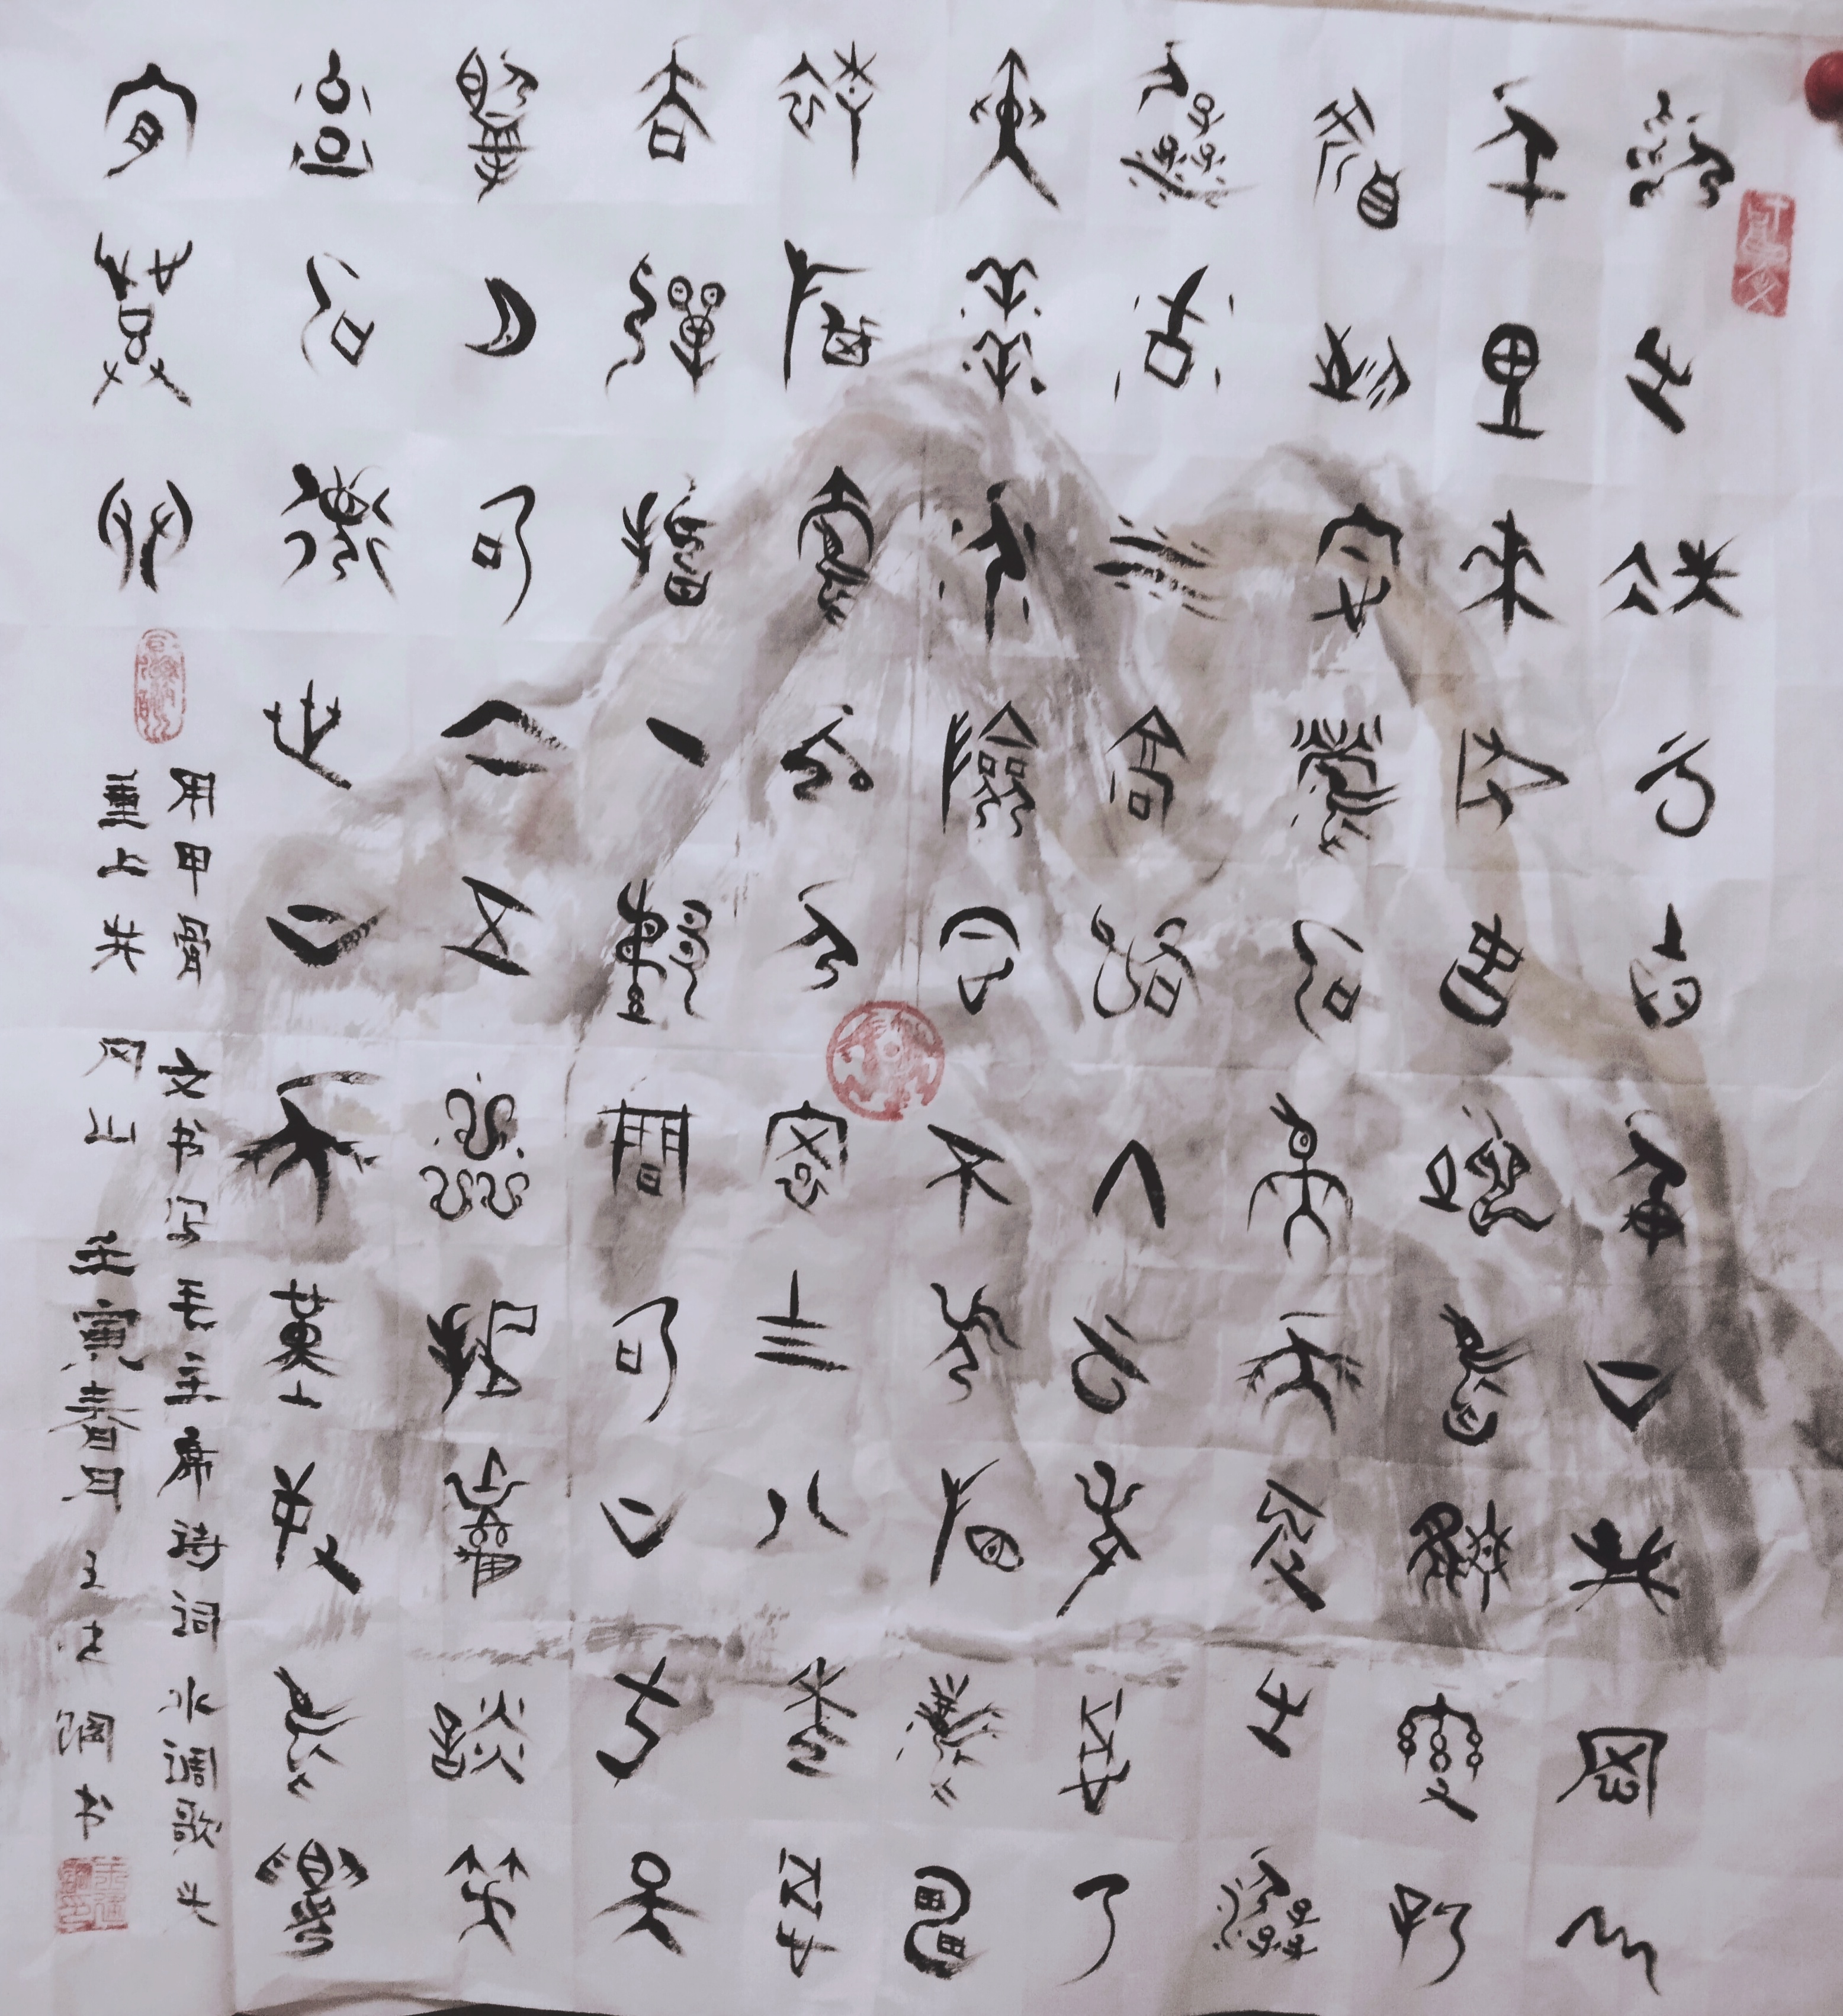 久有凌云志重上井冈山
千里来寻故地旧貌变新
颜到处莺歌燕舞更有潺
潺流水高路入云端过了
黄洋界险处不须看风雷
旌旗奋是人寰三十八年过
去弹指一挥间可上九天
揽月可下五洋捉鳖谈笑
凯歌还世上无难事只要
肯登攀
用甲骨文书写毛主席诗词水调歌头
重上井冈山 壬寅春月 书